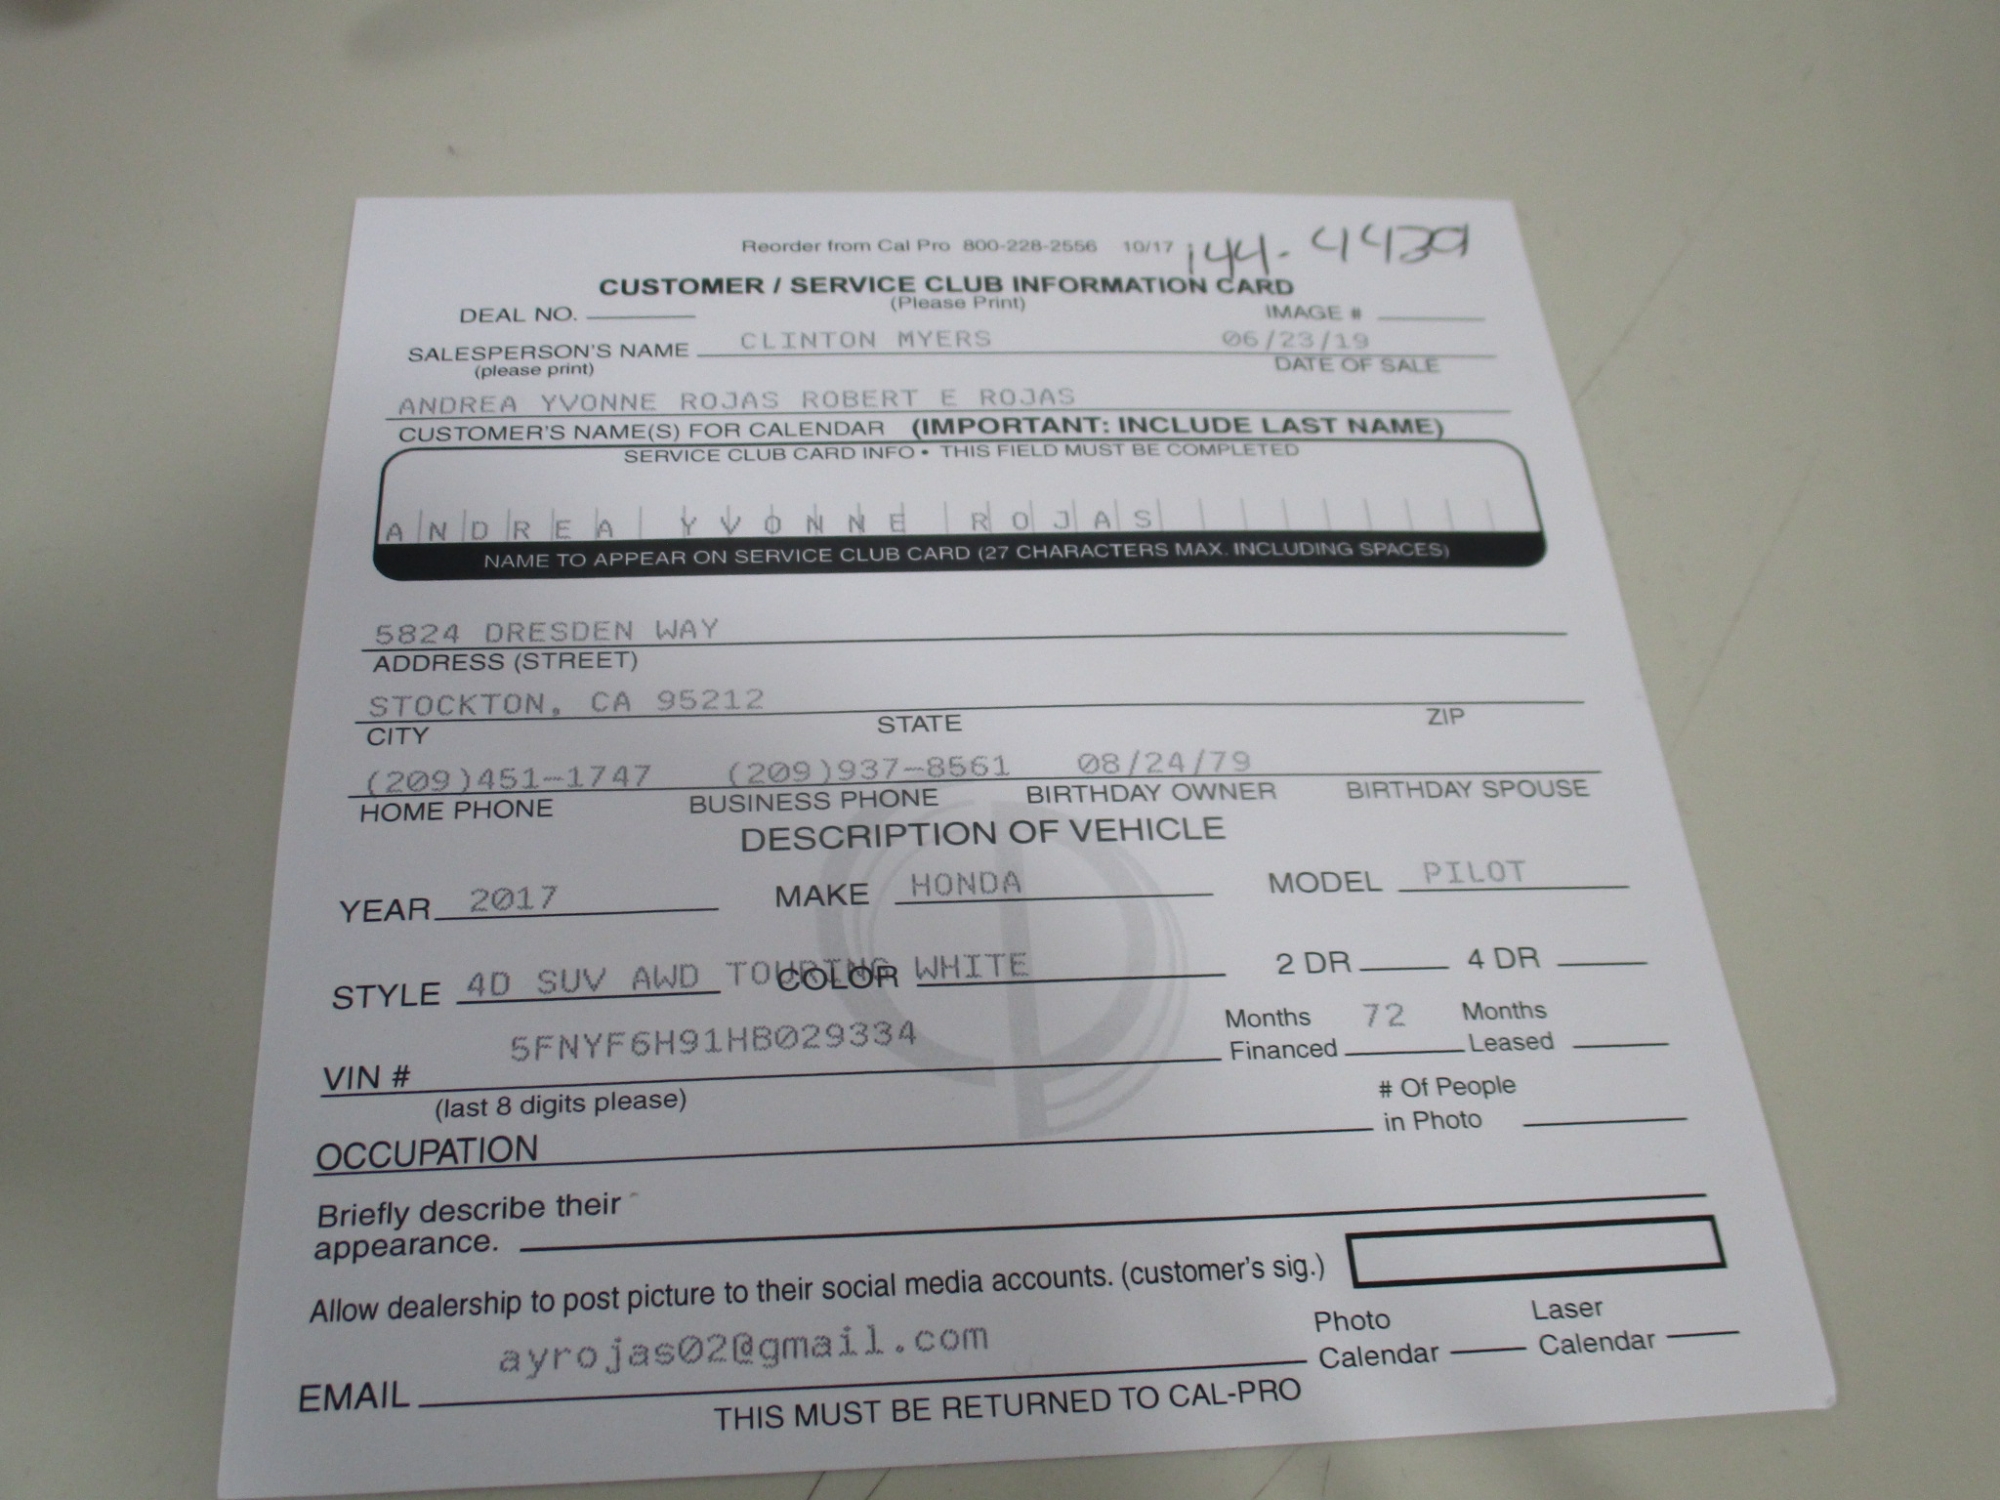 Reorder from Cal Pro 800-228-2556 10/17 144-4439
CUSTOMER / SERVICE CLUB INFORMATION CARD
(Please Print)
DEAL NO. IMAGE #
SALESPERSON'S NAME CLINTON MYERS 06/23/19
(please print) DATE OF SALE
ANDREA YVONNE ROJAS ROBERT E ROJAS
CUSTOMER'S NAME(S) FOR CALENDAR (IMPORTANT: INCLUDE LAST NAME)
SERVICE CLUB CARD INFO • THIS FIELD MUST BE COMPLETED
ANDREA YVONNE ROJAS
NAME TO APPEAR ON SERVICE CLUB CARD (27 CHARACTERS MAX. INCLUDING SPACES)
5824 DRESDEN WAY
ADDRESS (STREET)
STOCKTON, CA 95212
CITY STATE ZIP
(209)451-1747 (209)937-8561 08/24/79
HOME PHONE BUSINESS PHONE BIRTHDAY OWNER BIRTHDAY SPOUSE
DESCRIPTION OF VEHICLE
YEAR 2017 MAKE HONDA MODEL PILOT
STYLE 4D SUV AWD TOURING COLOR WHITE 2 DR 4 DR
VIN # 5FNYF6H91HB029334 Months Financed 72 Months Leased
(last 8 digits please)
OCCUPATION # Of People in Photo
Briefly describe their
appearance.
Allow dealership to post picture to their social media accounts. (customer's sig.)
EMAIL ayrojas02@gmail.com Photo Calendar Laser Calendar
THIS MUST BE RETURNED TO CAL-PRO